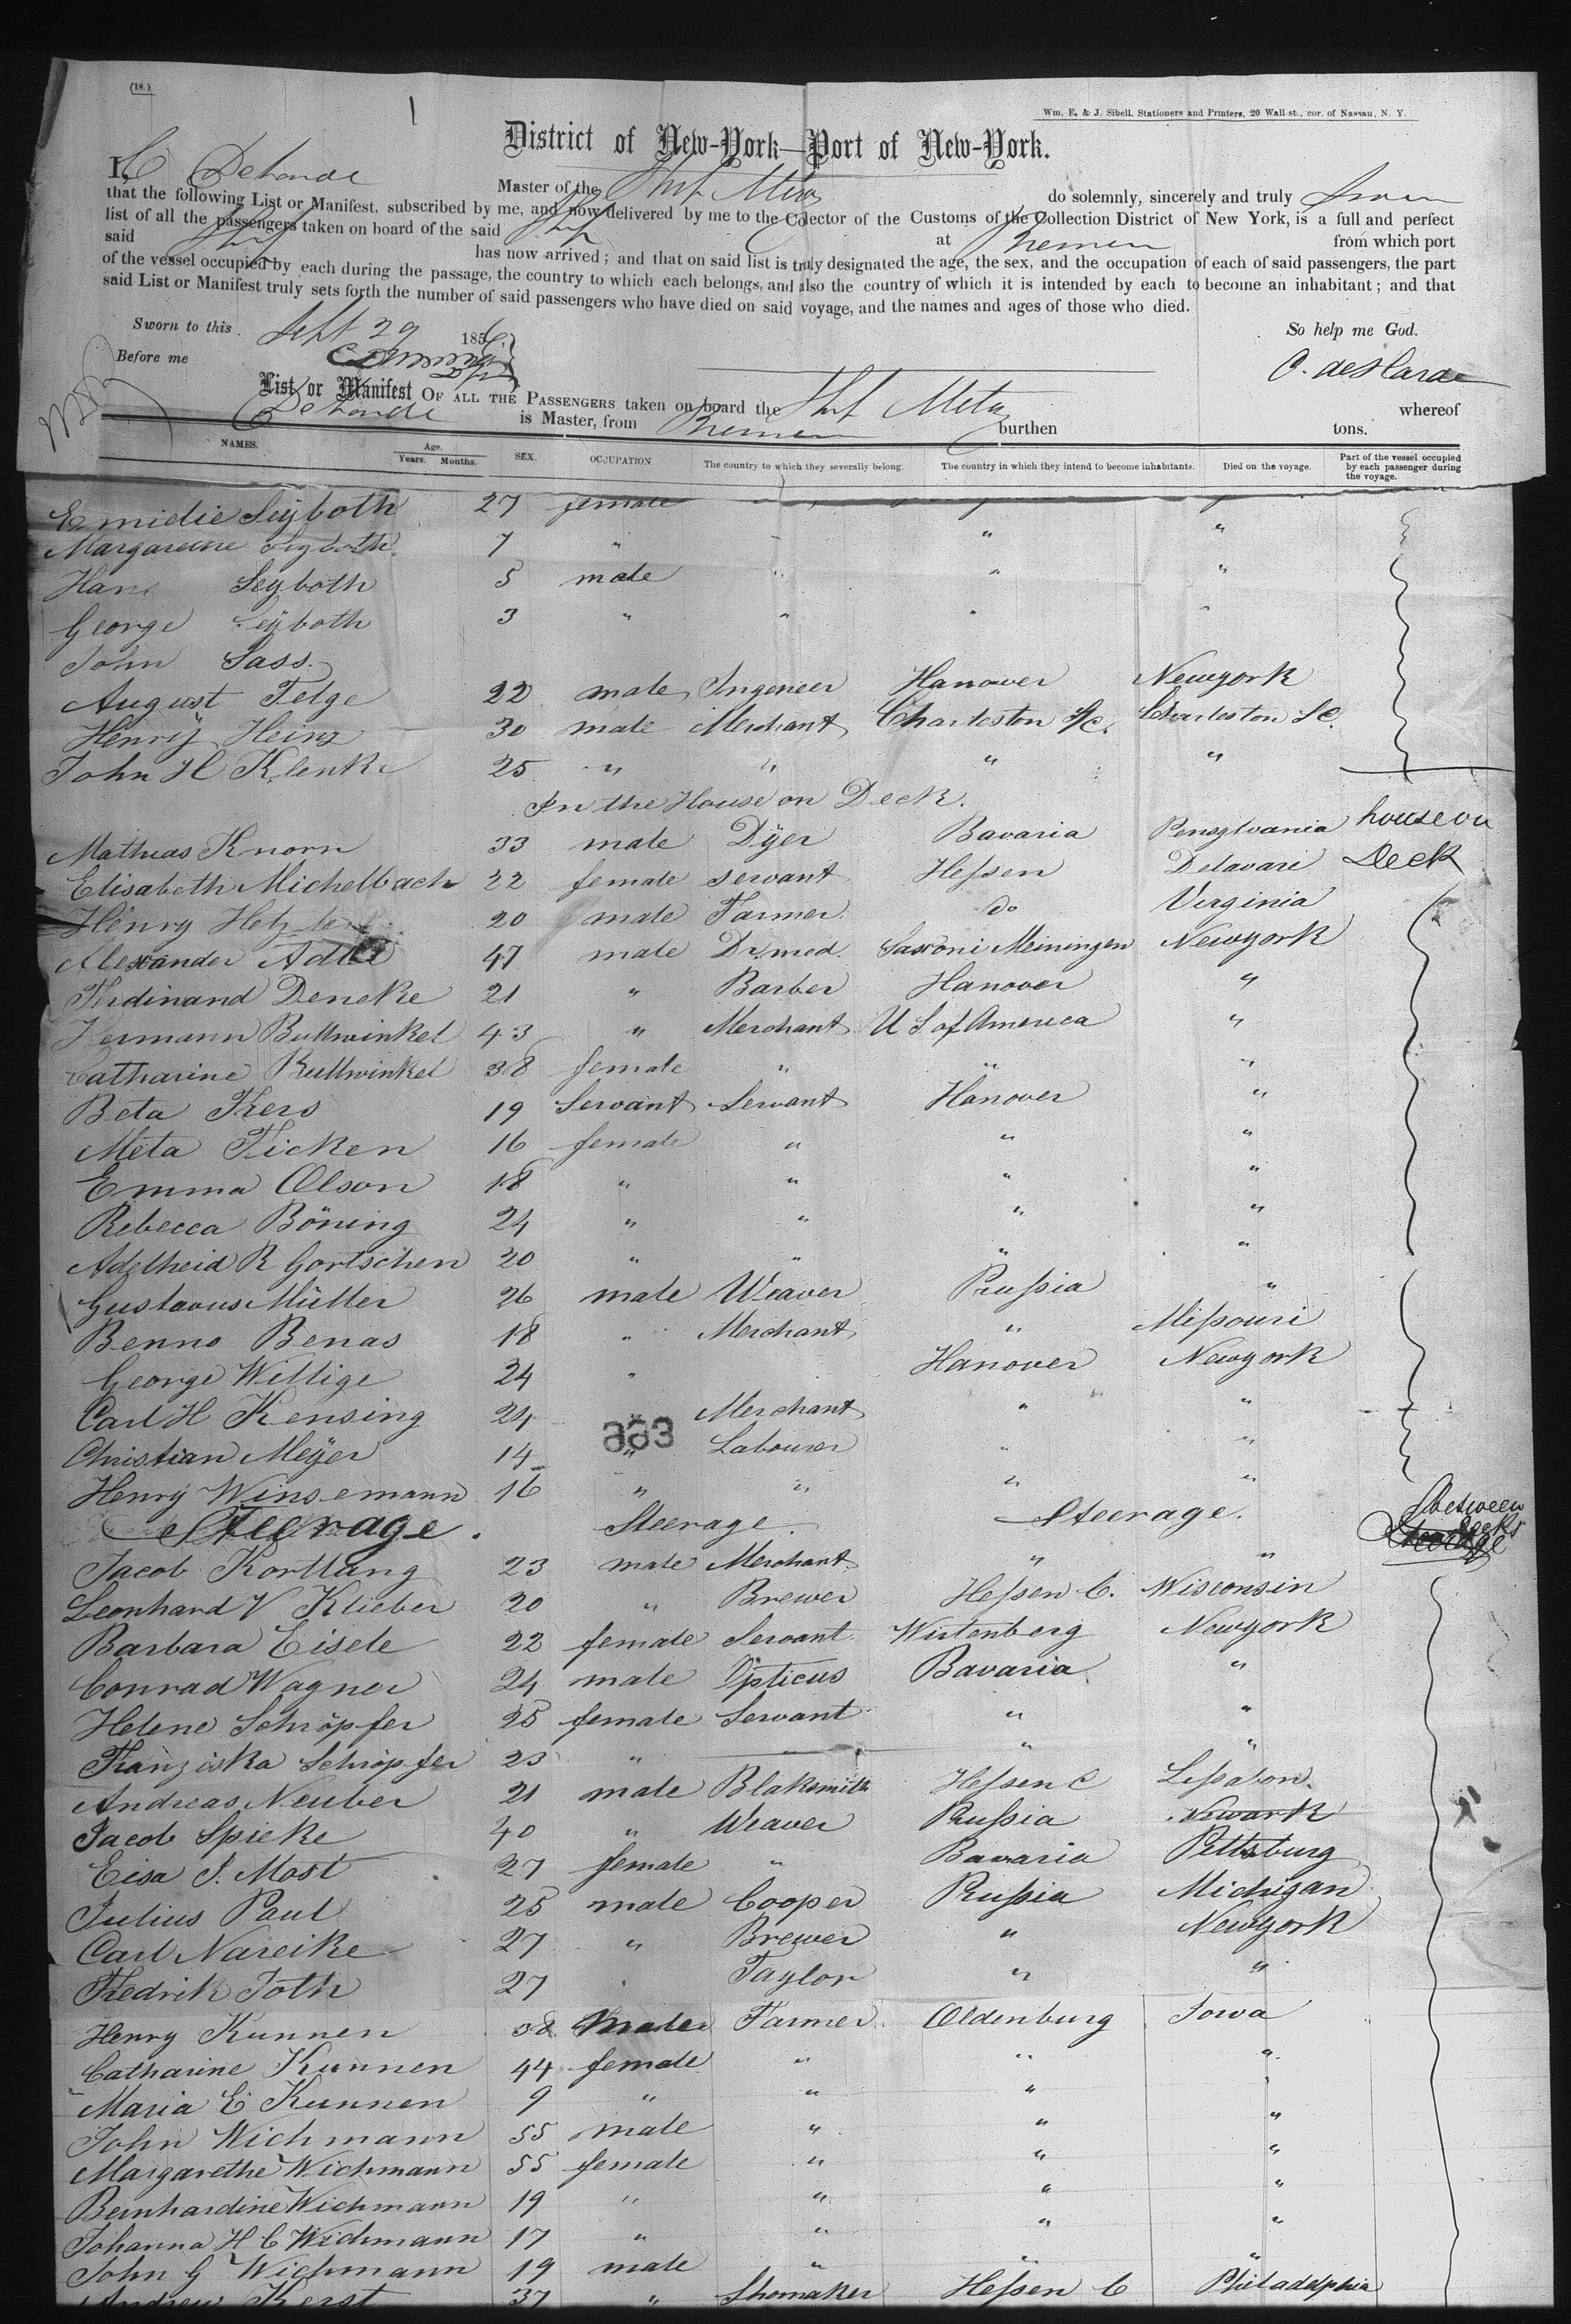 (18.)
Wm. E. & J. Sibell, Stationers and Printers, 20 Wall-st., cor. of Nassau, N. Y.
District of New-York—Port of New-York.
I, C Deharde Master of the Ship Meta do solemnly, sincerely and truly swear
that the following List or Manifest, subscribed by me, and now delivered by me to the Collector of the Customs of the Collection District of New York, is a full and perfect
list of all the passengers taken on board of the said Ship at Bremen from which port
said Ship has now arrived; and that on said list is truly designated the age, the sex, and the occupation of each of said passengers, the part
of the vessel occupied by each during the passage, the country to which each belongs, and also the country of which it is intended by each to become an inhabitant; and that
said List or Manifest truly sets forth the number of said passengers who have died on said voyage, and the names and ages of those who died.
Sworn to this Sept 29 1856 So help me God.
Before me C. deHarde
List or Manifest OF ALL THE PASSENGERS taken on board the Ship Meta whereof
Deharde is Master, from Bremen burthen tons.
NAMES. Age. Years. Months. SEX. OCCUPATION The country to which they severally belong. The country in which they intend to become inhabitants. Died on the voyage. Part of the vessel occupied by each passenger during the voyage.
Seyboth 27 female
Margarethe Seyboth 7 " " "
Hans Seyboth 5 male " " "
George Seyboth 3 " " " "
John Sass.
August Felge 22 male Ingeneer Hanover Newyork
Henry Heins 30 male Merchant Charleston S/C. Charleston SC.
John H Klenke 25 " " " "
In the House on Deck.
Mathias Knorn 33 male Dÿer Bavaria Pensylvania house on
Elisabeth Michelbach 22 female servant Hessen Delavare Deck
Henry 20 male Farmer do Virginia
Alexander Adler 47 male Dr. med. Saxoni Meiningen Newyork
Ferdinand Deneke 21 " Barber Hanover "
Hermann Bullwinkel 43 " Merchant U S of America "
Catharine Bullwinkel 38 female " " "
Beta Fiers 19 Servant Servant Hanover "
Meta Ficken 16 female " " "
Emma Olson 18 " " " "
Rebecca Böning 24 " " " "
Adelheid R Gortschen 20 " " " "
Gustavus Müller 26 male Weaver Prussia "
Benno Benas 18 " Merchant " Missouri
George Willige 24 " Hanover Newyork
Carl H Kensing 24 " Merchant " "
Christian Meÿer 14 " Labourer " "
Henry Winsemann 16 " " " "
Steerage. Steerage. Steerage. between decks
Jacob Kortlang 23 male Merchant " "
Leonhard V Klieber 20 " Brewer Hessen C. Wisconsin
Barbara Eisele 22 female Servant Wirtenberg Newyork
Conrad Wagner 24 male Opticus Bavaria "
Helene Schröpfer 25 female Servant " "
Franziska Schröpfer 23 " " "
Andreas Neuber 21 male Blaksmith Hessen C
Jacob Spieke 40 " Weaver Prussia Newark
Eisa S. Most 27 female " Bavaria Pettsburg
Julius Paul 25 male Cooper Prussia Michigan
Carl Nareike 27 " Brewer " Newyork
Fredrik Toth 27 " Taylor " "
Henry Kunnen 38 Male Farmer Oldenburg Iowa
Catharine Kunnen 44 female " " "
Maria E Kunnen 9 " " " "
John Wichmann 55 male " " "
Margarethe Wichmann 55 female " " "
Bernhardine Wichmann 19 " " " "
Johanna H C Wichmann 17 " " " "
John G Wichmann 19 male " " "
Andrew Kerst 37 " Shomaker Hessen C Philadalphia